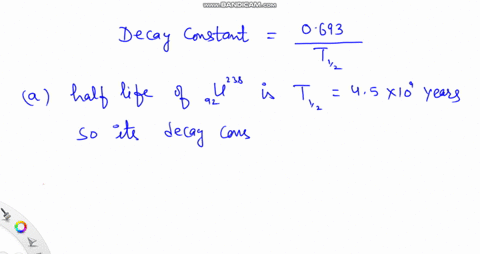 WWW.BANDICAM.COM
Decay Constant = 0.693 / T½
(a) half life of ₉₂U²³⁸ is T½ = 4.5 × 10⁹ years
so its decay cons